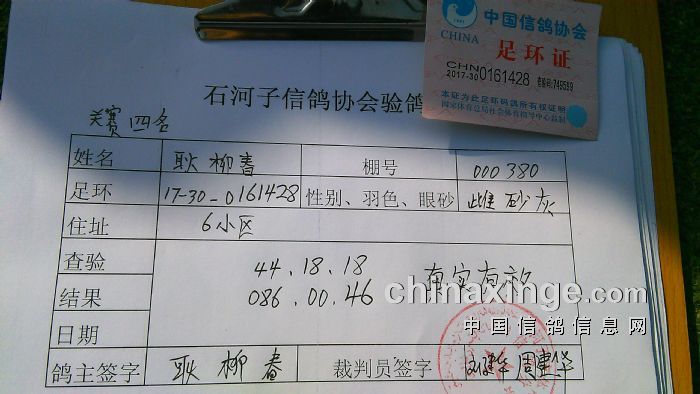 中国信鸽协会
CHINA
足环证
CHN
2017-30-0161428
749599
本证为此足环码鸽所有权证明
国家体育总局社会体育指导中心监制
石河子信鸽协会验鸽
关赛四名
姓名 耿柳春 棚号 000380
足环 17-30-0161428 性别、羽色、眼砂 雌 砂 灰
住址 6小区
查验 44.18.18
结果 086.00.46 有效
日期
chinaxinge.com
中国信鸽信息网
鸽主签字 耿柳春 裁判员签字 周建华